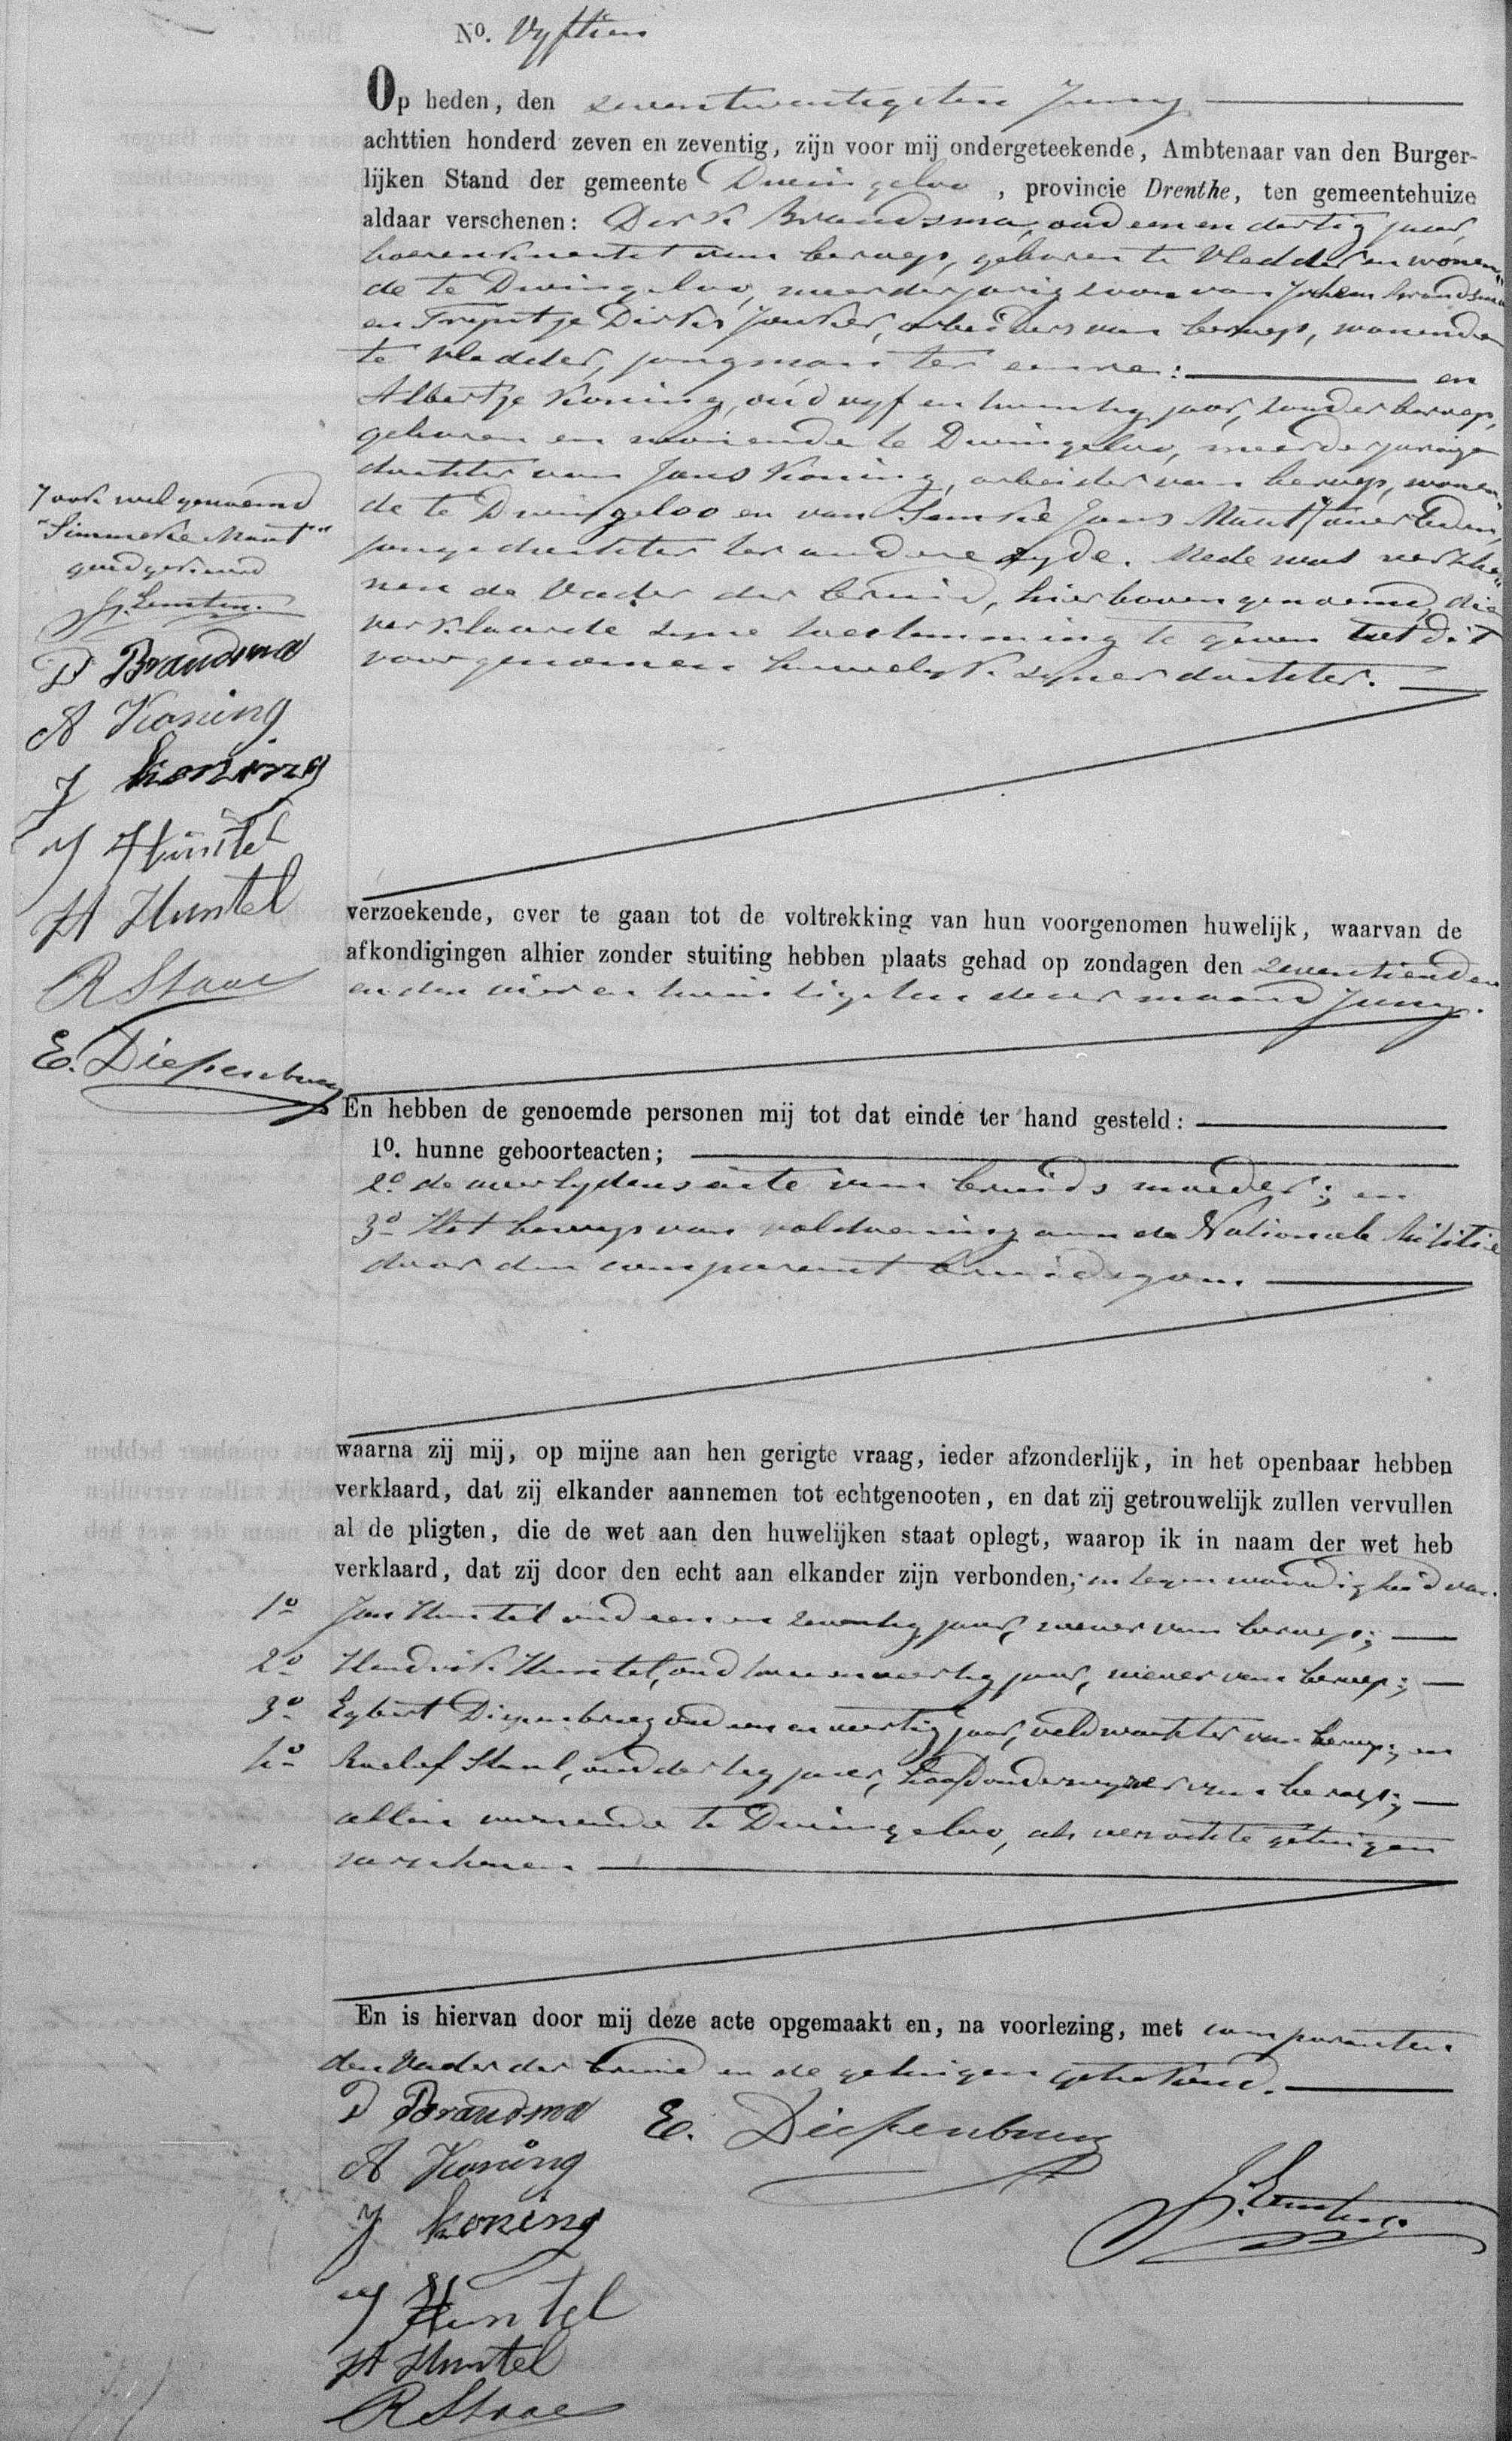 No. Vyftien
Op heden, den zevenentwintigsten Juny
achttien honderd zeven en zeventig, zijn voor mij ondergeteekende, Ambtenaar van den Burger-
lijken Stand der gemeente Dwingeloo, provincie Drenthe, ten gemeentehuize
aldaar verschenen: Derk Brandsma, oud een en dertig jaar,
boerenknecht van beroep, geboren te Vledder en wonen„
de te Dwingeloo, meerderjarig zoon van Jochem Brandsma
en Tryntje Dirks Jonker, arbeiders van beroep, wonende
te Vledder, jongman ter eenre: en
Albertje Koning, oud vyf en twintig jaar, zonder beroep,
geboren en wonende te Dwingeloo, meerderjarige
dochter van Jans Koning, arbeider van beroep, wonen„
de te Dwingeloo en van Jans Mant, overleden,
jongedochter ter andere zyde. Mede was versche„
nen de Vader der bruid, hierboven genoemd, die
verklaarde zyne toestemming te geven tot dit
voorgenomen huwelyk zyner dochter.
ook wel genoemd
"Simmeke Mant"
goedgekeurd
D Brandsma
A Koning
J Koning
J Huntel
H Huntel
R Staal
E. Diepenbrug
verzoekende, over te gaan tot de voltrekking van hun voorgenomen huwelijk, waarvan de
afkondigingen alhier zonder stuiting hebben plaats gehad op zondagen den zeventienden
en den vier en twintigsten dezer maand Juny.
En hebben de genoemde personen mij tot dat einde ter hand gesteld:
1o. hunne geboorteacten;
2o de overlydensacte van bruids moeder; en
3o Het bewys van voldoening aan de Nationale Militie
door den comparant bruidegom.
waarna zij mij, op mijne aan hen gerigte vraag, ieder afzonderlijk, in het openbaar hebben
verklaard, dat zij elkander aannemen tot echtgenooten, en dat zij getrouwelijk zullen vervullen
al de pligten, die de wet aan den huwelijken staat oplegt, waarop ik in naam der wet heb
verklaard, dat zij door den echt aan elkander zijn verbonden, in tegenwoordigheid van
1o Jan Huntel oud een en zeventig jaar, wever van beroep;
2o Hendrik Huntel, oud twee en veertig jaar, wever van beroep;
3o Egbert Diepenbrug oud een en veertig jaar, veldwachter van beroep; en
4o Roelof Staal, oud dertig jaar, hoofdonderwyzer van beroep;
allen wonende te Dwingeloo, als verzochte getuigen
verschenen
En is hiervan door mij deze acte opgemaakt en, na voorlezing, met comparanten
den Vader der bruid en de getuigen geteekend.
D Brandsma E. Diepenbrug
A Koning
J Koning
J Huntel
H Huntel
R Staal